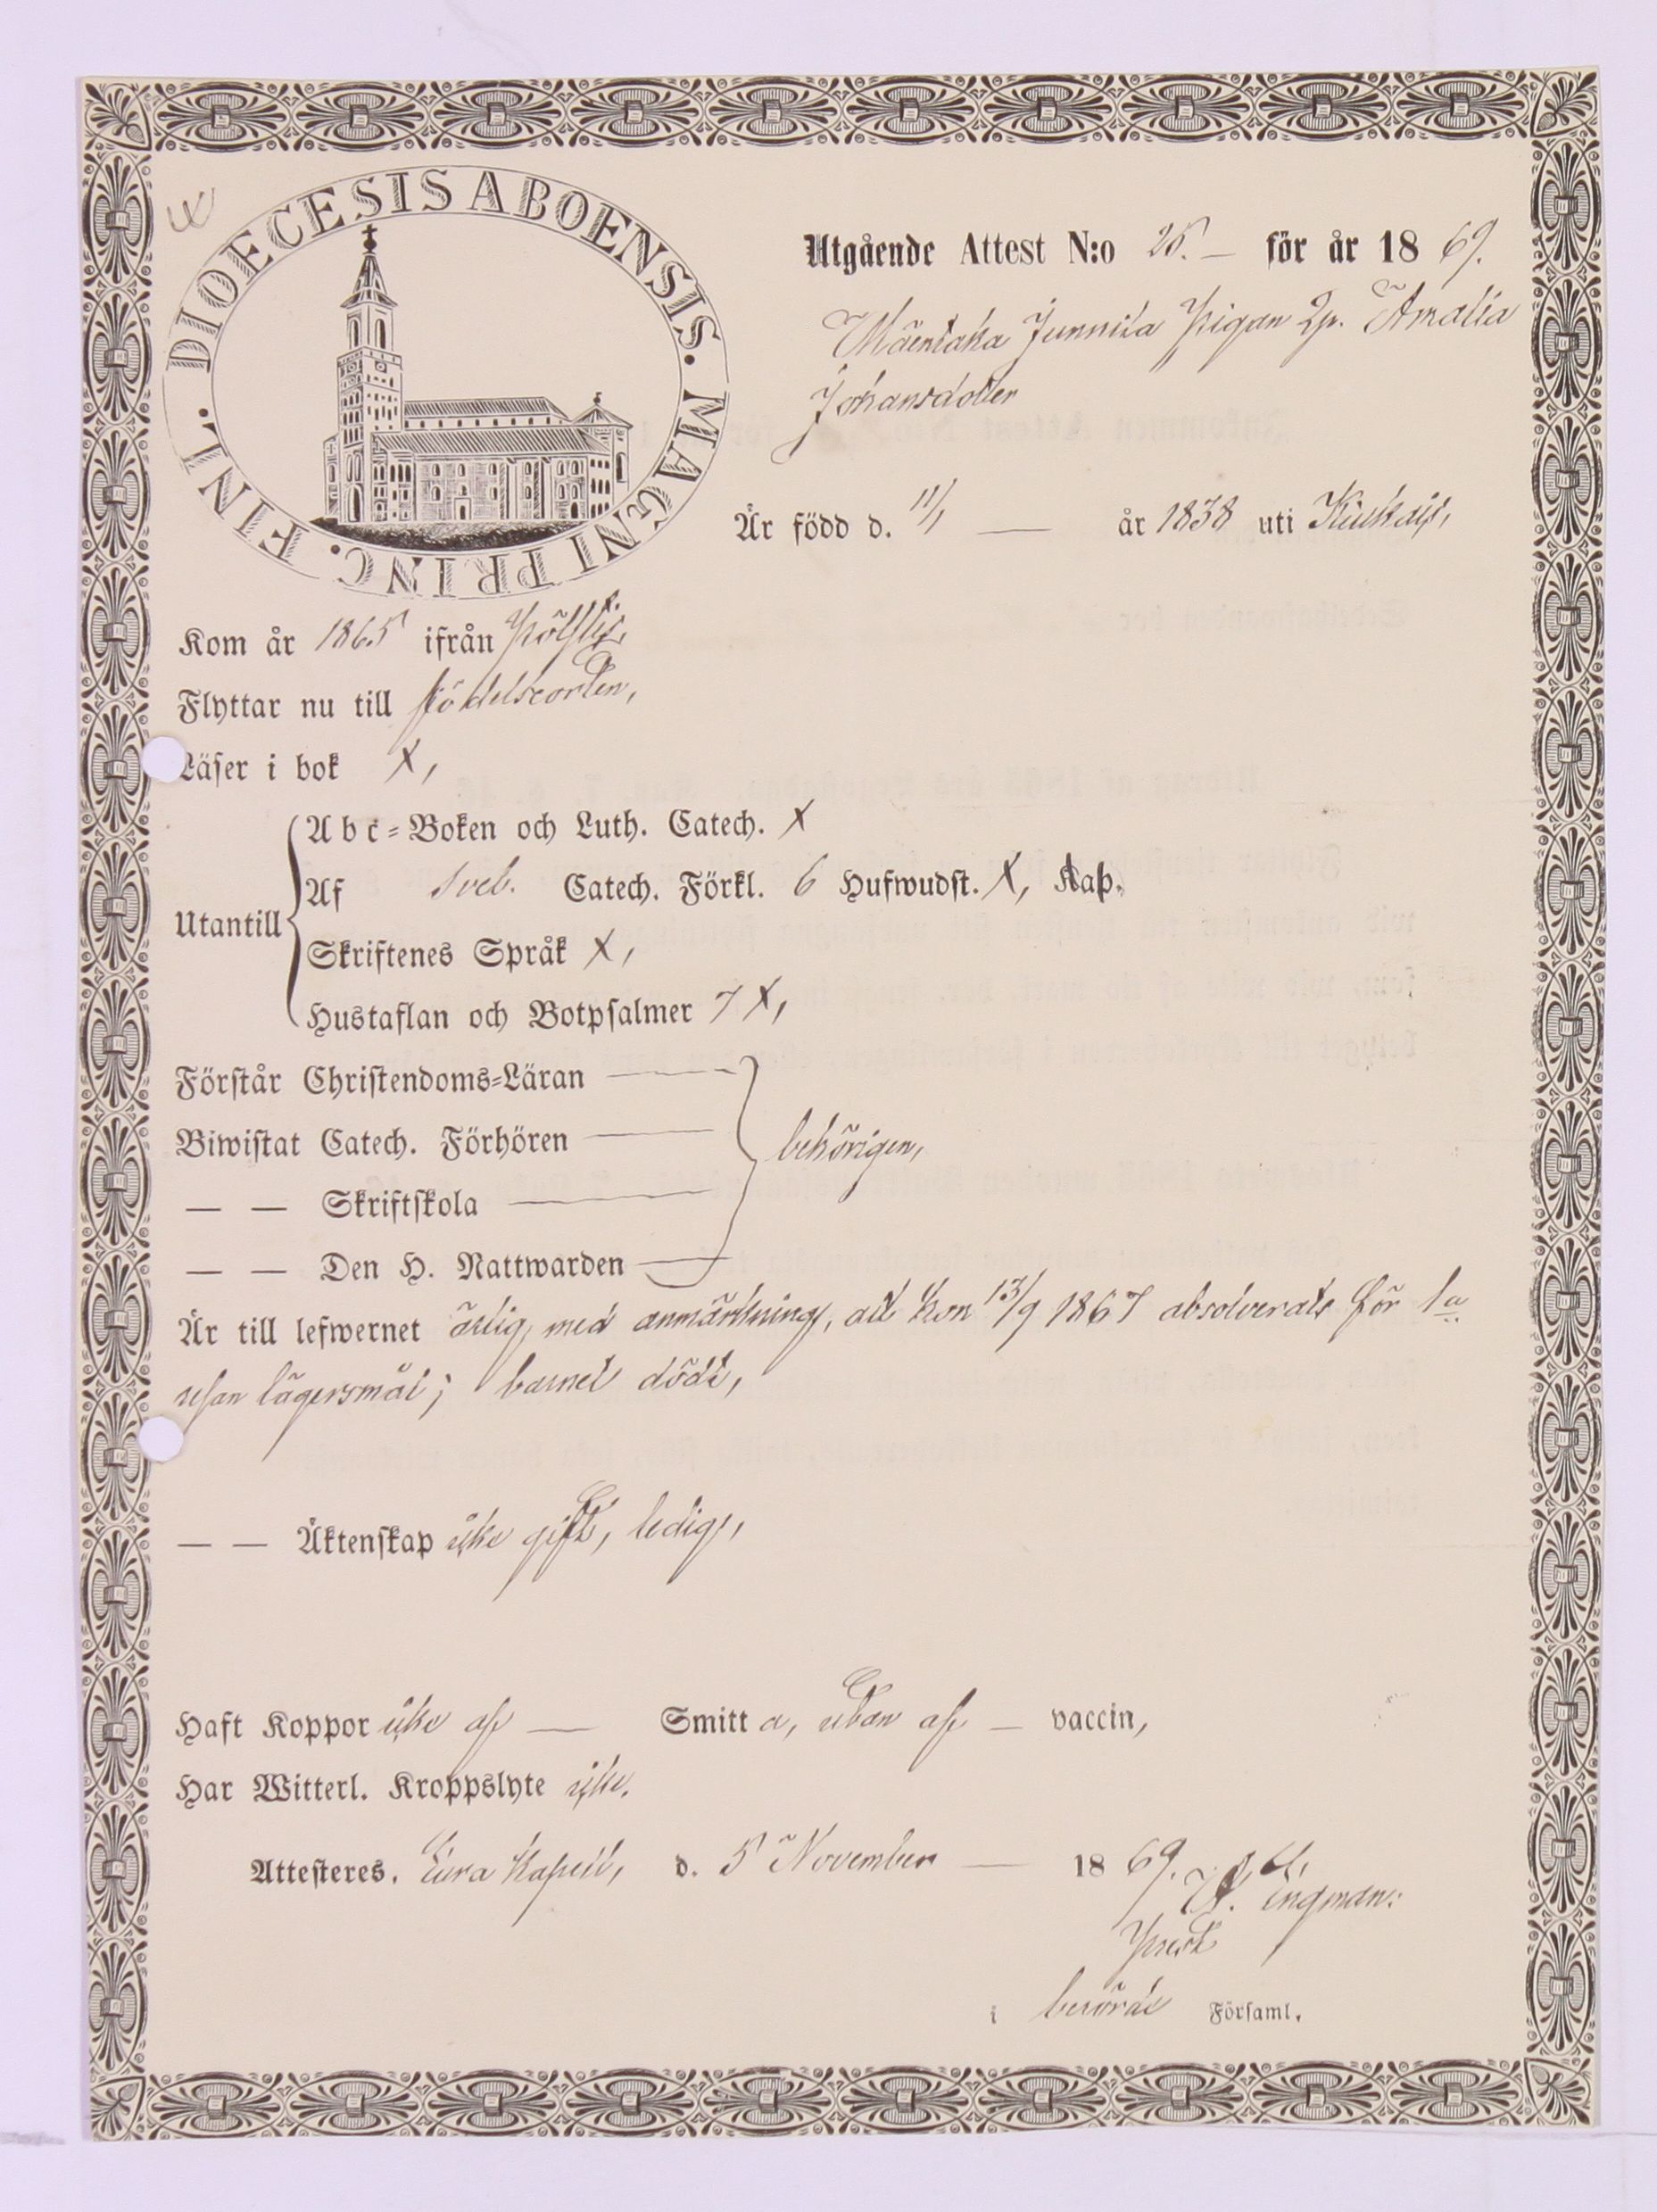 DIOECESIS ABOENSIS. MAGNI PRINC. FINL.
Utgående Attest N:o 25. — för år 1869.
Mäentaka Junnila Pigan Amalia
Johansdotter
Är född d. 11/1 — år 1838 uti Kiukais,
Kom år 1865 ifrån
Flyttar nu till födelseorten,
Läser i bok X,
Abc-Boken och Luth. Catech. X
Af Sveb. Catech. Förkl. 6 Hufwudst. X, Kap.
Utantill
Skriftenes Språk X,
Hustaflan och Botpsalmer 7 X,
Förstår Christendoms-Läran
Biwistat Catech. Förhören — behörigen,
— — Skriftskola
— — Den H. Nattwarden
Är till lefwernet ärlig, med anmärkning, att hon 13/9 1867 absolverats för 1a
resan lägersmål; barnet dödt,
— — Äktenskap icke gift, ledig,
Haft Koppor icke af — Smitta, utan af — vaccin,
Har Witterl. Kroppslyte icke.
Attesteres. Eura Kapell, d. 5 November — 1869.
Engman.
Prest
i berörde Församl.